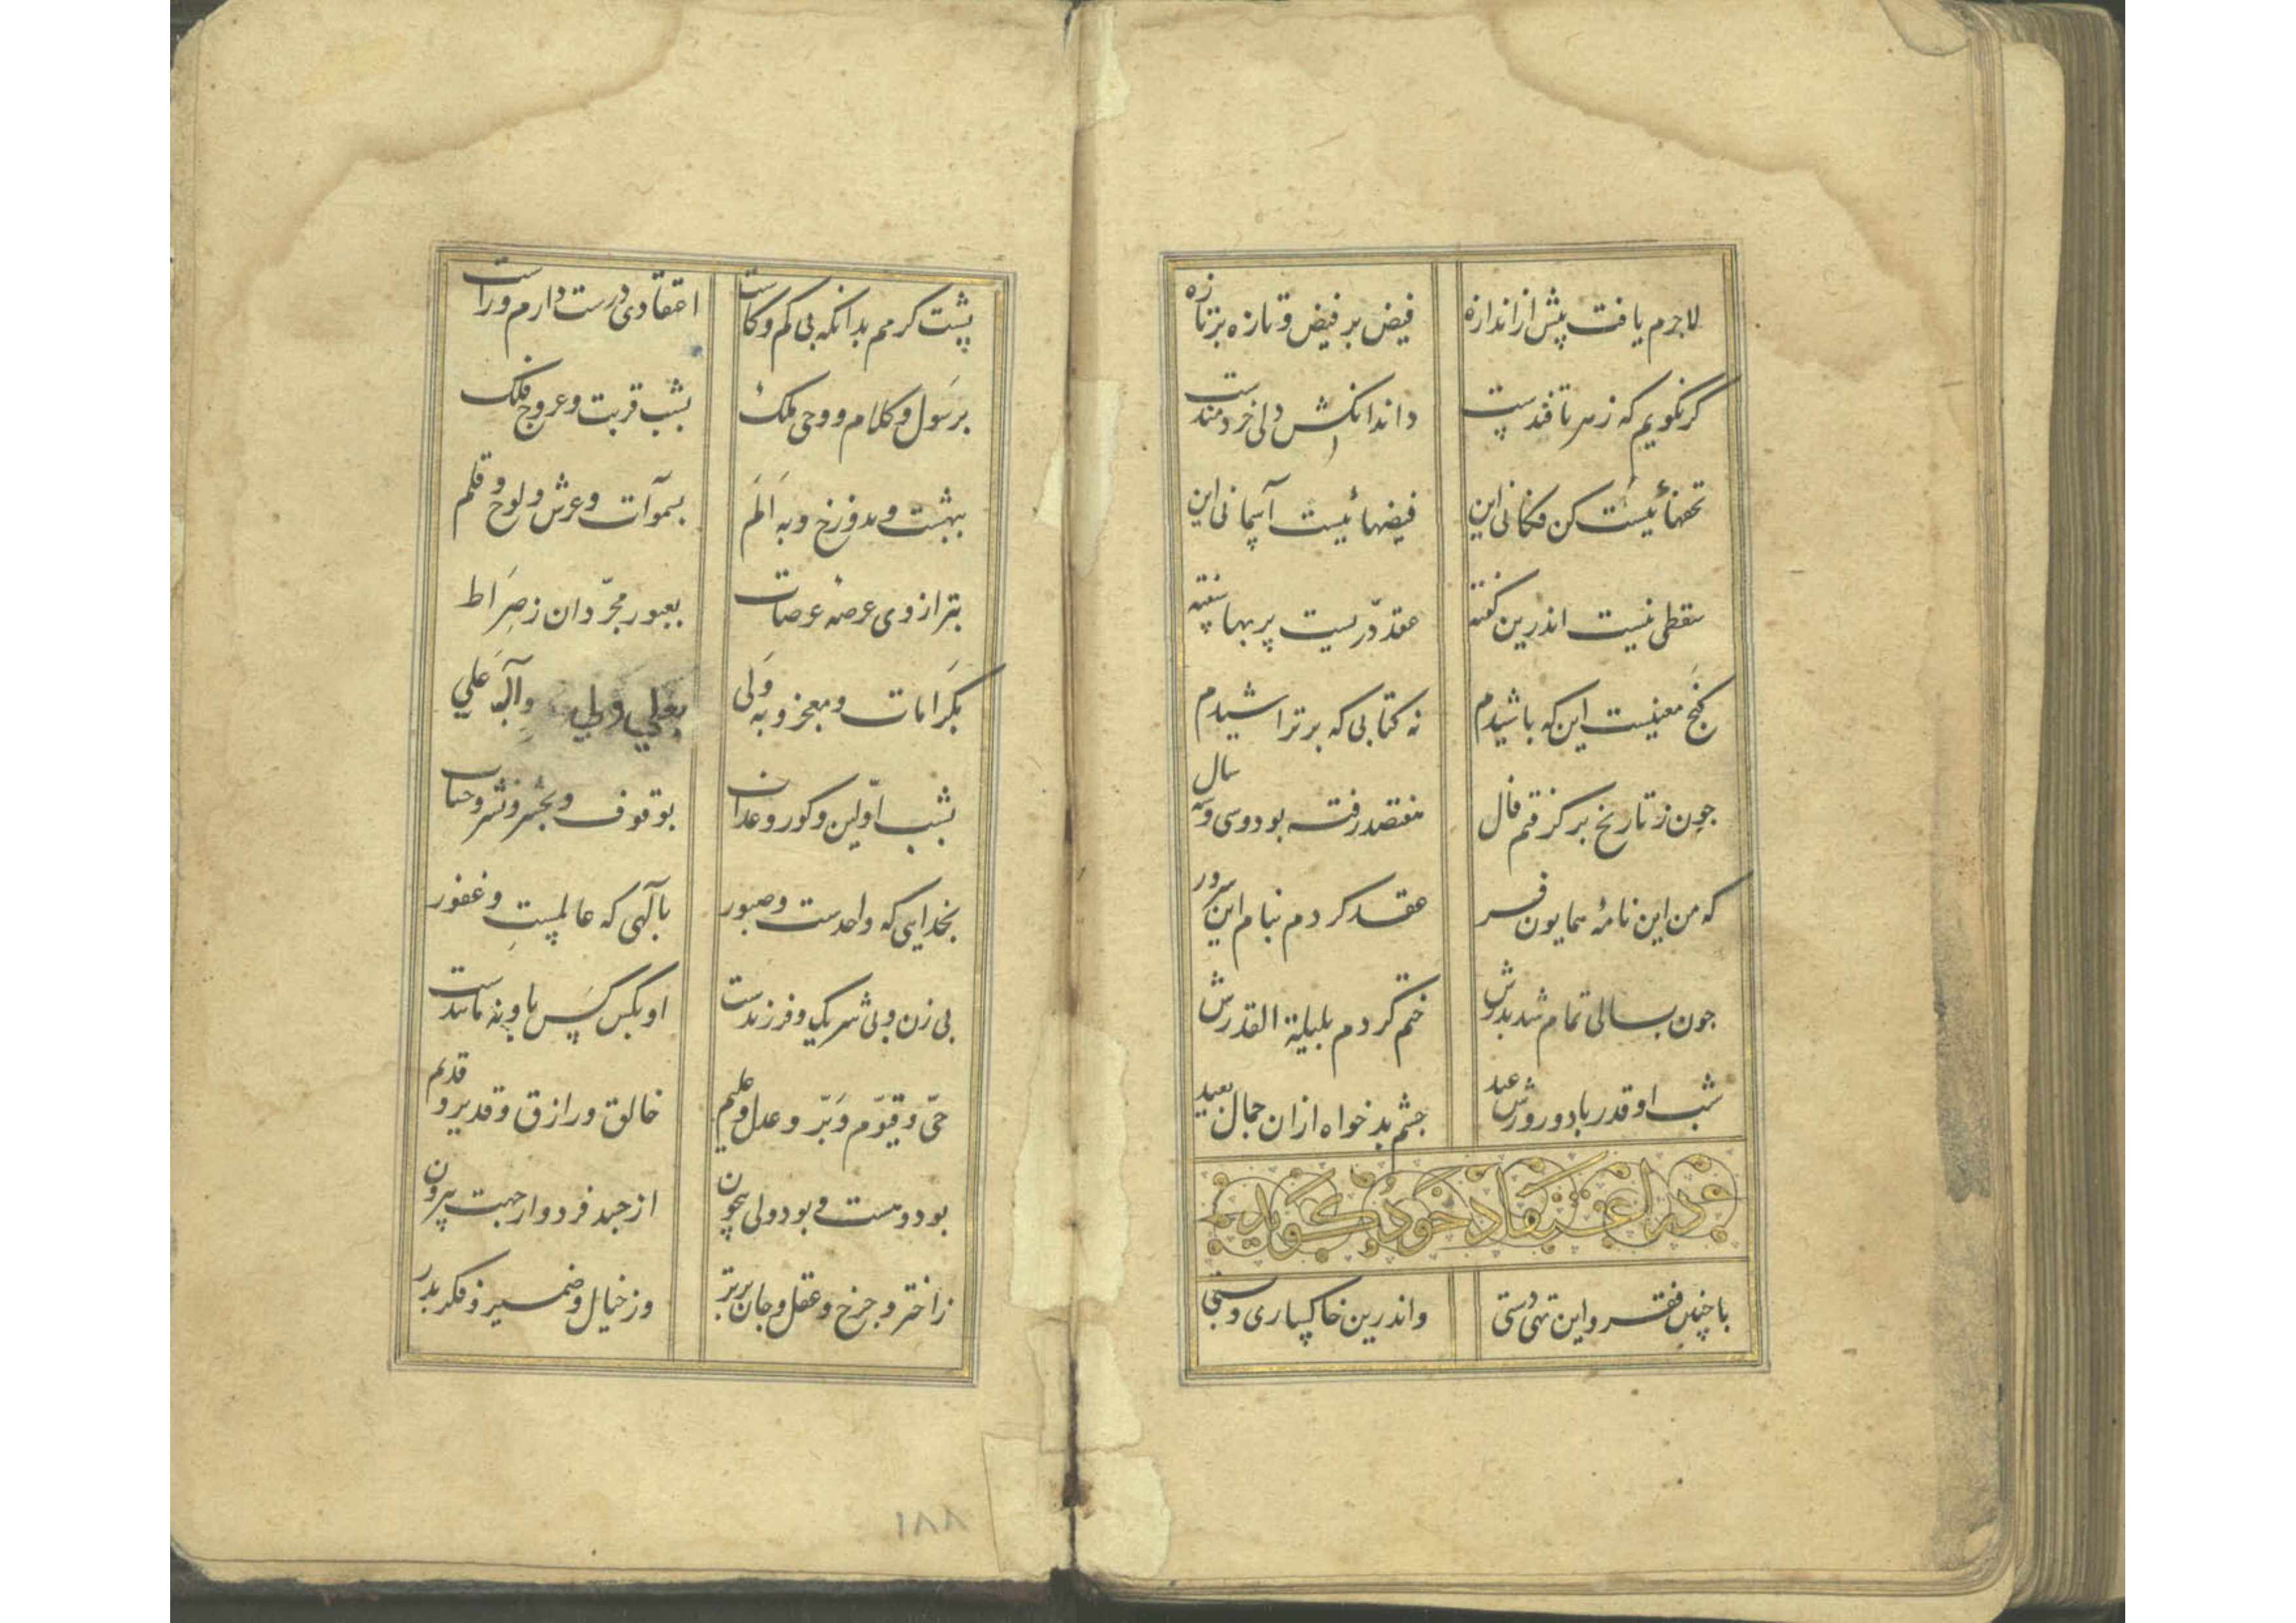 لاجرم یافت پیش از اندازه فیض بر فیض و تازه بر تازه
گر نگویم که زهر تا قندست داند انکش دلی خردمندست
تحفهائیست کن فکانی این فیضهائیست آسمانی این
سقطی نیست اندرین گفته عقد درّیست پر بها سفته
گنج معنیست این که پاشیدم نه کتابی که بر تراشیدم
چون ز تاریخ برگرفتم فال هفتصد رفته بود و سی و سه سال
که من این نامهٔ همایون فر عقد کردم بنام این سرور
چون بسالی تمام شد بدرش ختم کردم بلیلة القدرش
شب او قدر باد و روزش عید چشم بدخواه ازان جمال بعید
در اعتقاد خود گوید
با چنین فقر و این تهی دستی واندرین خاکساری و پستی
پشت گرمم بدانکه بی کم و کاست اعتقادی درست دارم و راست
برسول و کلام و وحی ملک بشب قربت و عروج فلک
ببهشت و بدوزخ و به اَلَم بسموآت و عرش و لوح و قلم
بترازوی عرصهٔ عرصات بعبور مجرّدان ز صِرَاط
بکَرَامات و معجز و به وَلی بعلی ولی وآلِه عَلي
بشب اوّلین و گور و عذاب بوقوف و بحشر و نشر و حساب
بخدایی که واحدست و صبور بالهی که عالمست و غفور
بی زن و بی شریک و فرزندست او بکس کس باو نه مانندست
حیّ و قیوّم و بَرّ و عدل و علیم خالق و رازق و قدیر و قدیم
بود و هست و بود ولی بیچون از جسد فرد و از جهت بیرون
ز اختر و چرخ و عقل و جان برتر وز خیال و ضمیر و فکر بدر
۱۸۸